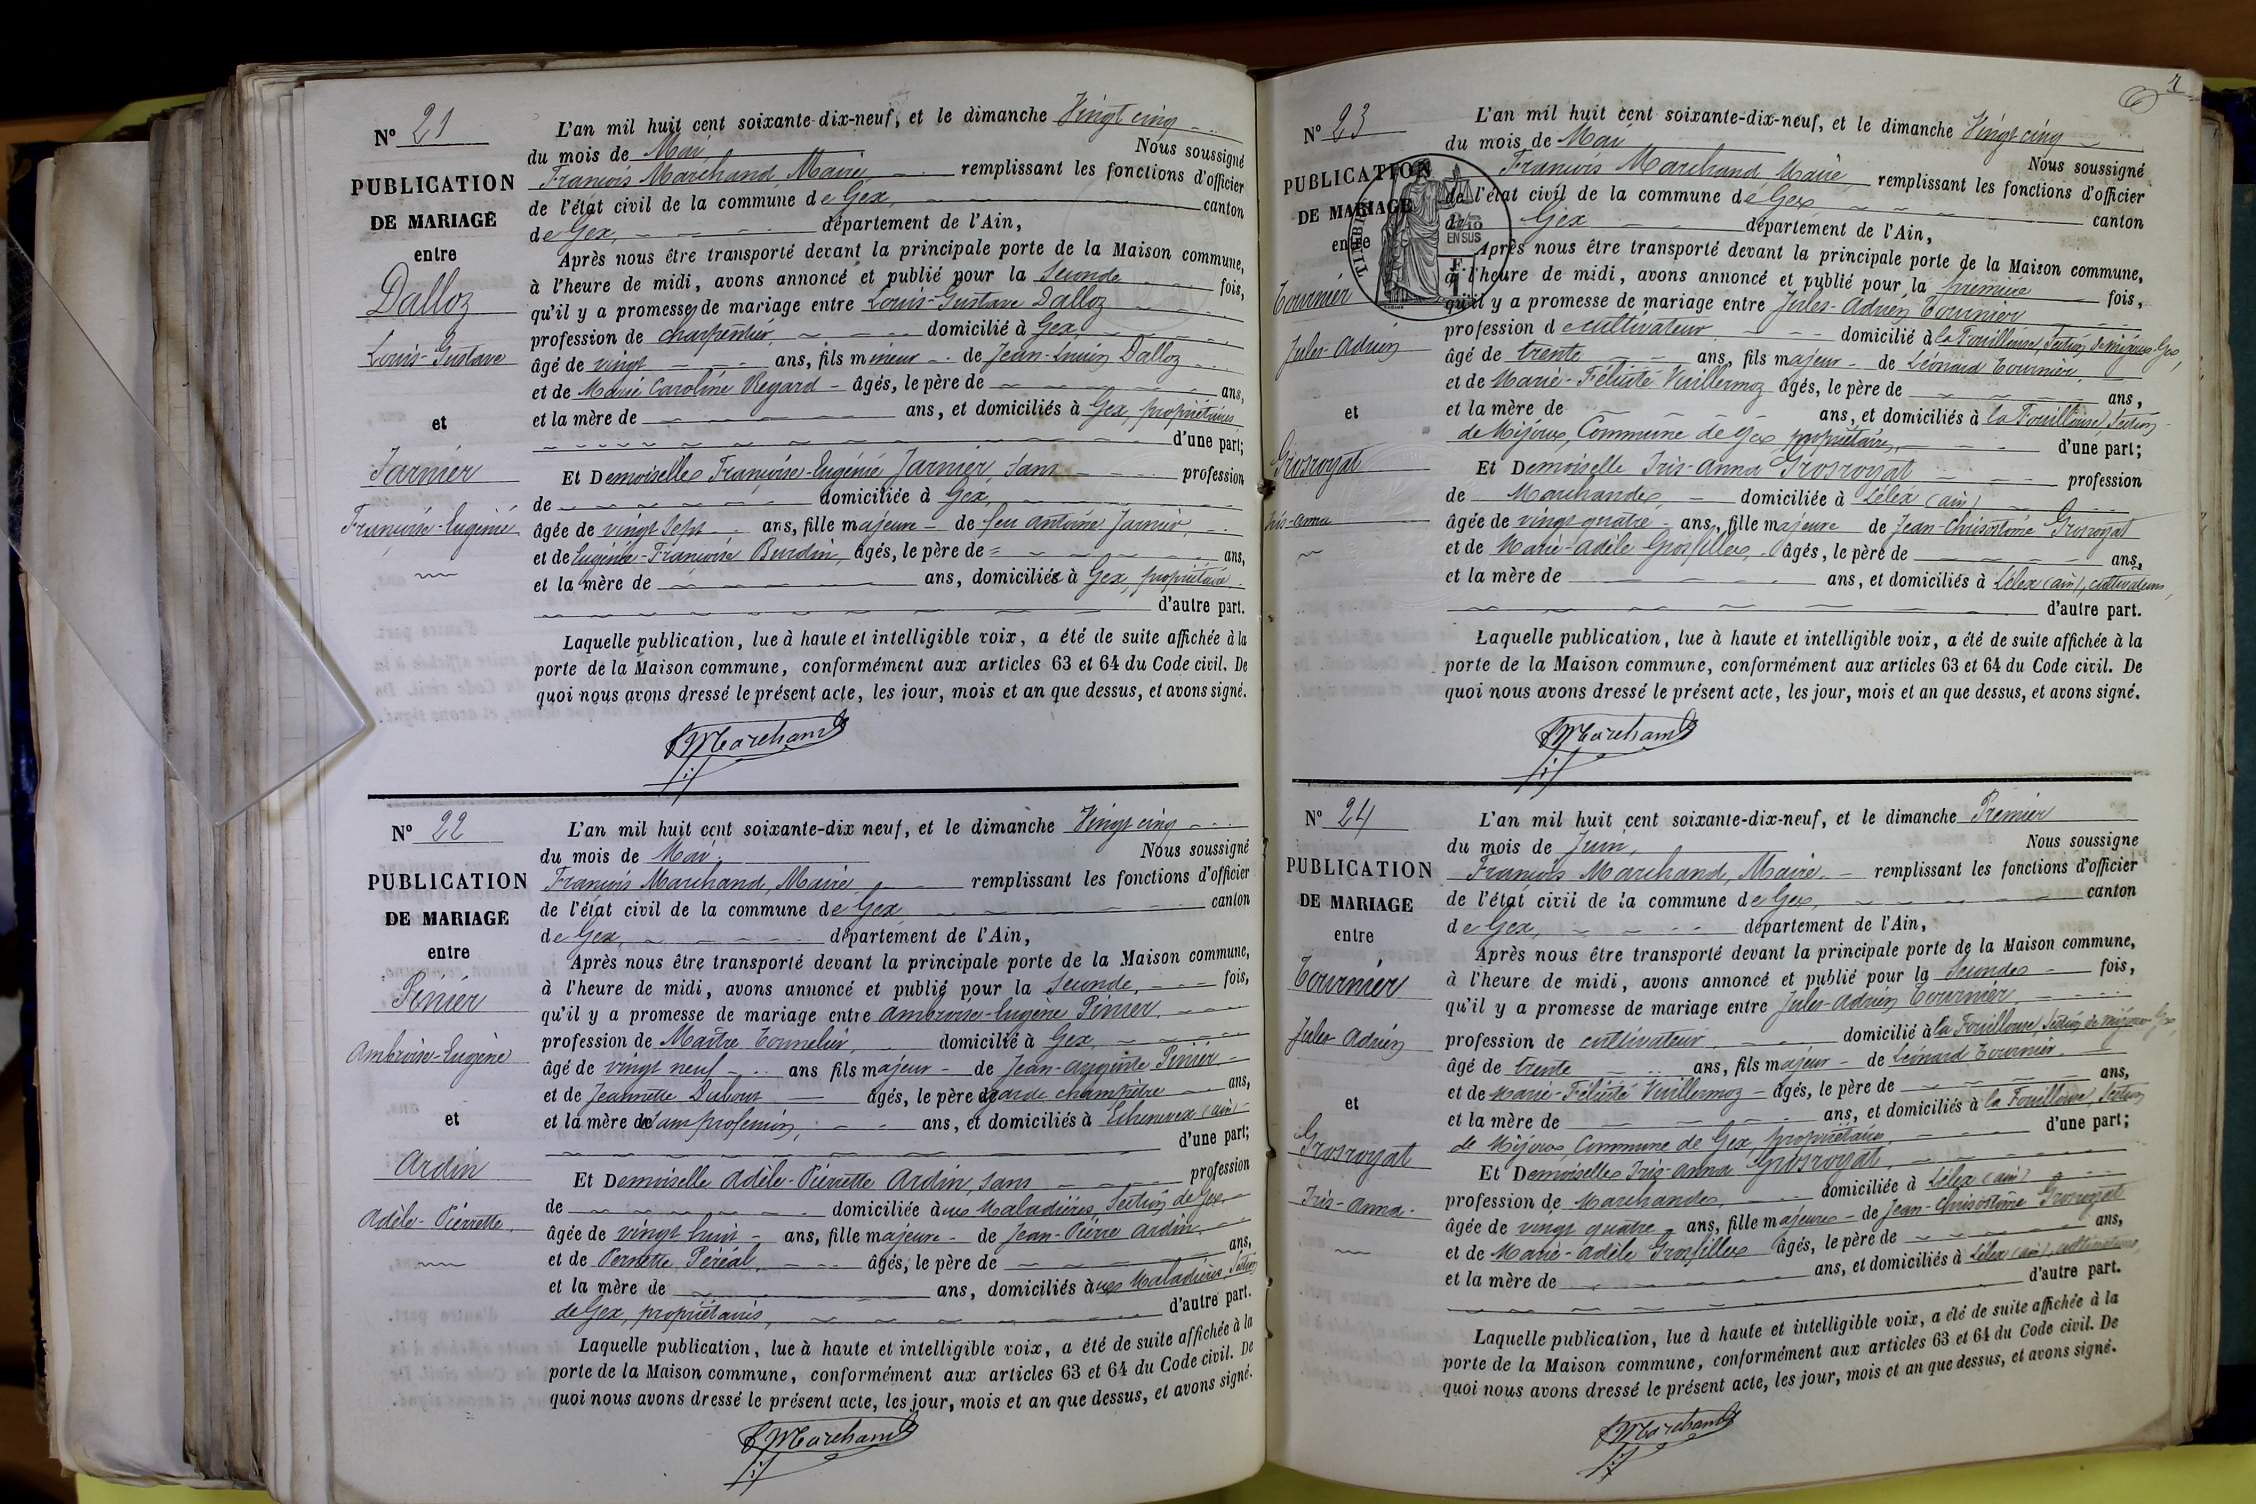 N° 21
PUBLICATION
DE MARIAGE
entre
Dalloz
Louis-Gustave
et
Jarnier
Françoise-Eugénie
L'an mil huit cent soixante-dix-neuf, et le dimanche Vingt cinq
du mois de Mai Nous soussigné
François Marchand, Maire remplissant les fonctions d'officier
de l'état civil de la commune de Gex, canton
de Gex, département de l'Ain,
Après nous être transporté devant la principale porte de la Maison commune,
à l'heure de midi, avons annoncé et publié pour la seconde fois,
qu'il y a promesse de mariage entre Louis-Gustave Dalloz
profession de charpentier, domicilié à Gex,
âgé de vingt ans, fils mineur de Jean-Louis Dalloz
et de Marie Caroline Regard âgés, le père de ans,
et la mère de ans, et domiciliés à Gex, propriétaires,
d'une part;
Et Demoiselle Françoise-Eugénie Jarnier, sans profession
de domiciliée à Gex,
âgée de vingt sept ans, fille majeure de feu Antoine Jarnier,
et de Eugénie-Françoise Burdin, âgés, le père de ans,
et la mère de ans, domiciliés à Gex, propriétaire
d'autre part.
Laquelle publication, lue à haute et intelligible voix, a été de suite affichée à la
porte de la Maison commune, conformément aux articles 63 et 64 du Code civil. De
quoi nous avons dressé le présent acte, les jour, mois et an que dessus, et avons signé.
F Marchand
N° 22
PUBLICATION
DE MARIAGE
entre
Pinier
Ambroise-Eugène
et
Ardin
Adèle-Pierrette
L'an mil huit cent soixante-dix neuf, et le dimanche Vingt cinq
du mois de Mai Nous soussigné
François Marchand, Maire remplissant les fonctions d'officier
de l'état civil de la commune de Gex canton
de Gex, département de l'Ain,
Après nous être transporté devant la principale porte de la Maison commune,
à l'heure de midi, avons annoncé et publié pour la seconde fois,
qu'il y a promesse de mariage entre Ambroise-Eugène Pinier
profession de Maître Tonnelier, domicilié à Gex,
âgé de vingt neuf ans fils majeur de Jean-Auguste Pinier
et de Jeannette Dubout âgés, le père de garde champêtre ans,
et la mère de sans profession, ans, et domiciliés à Echenevex (ain)
d'une part;
Et Demoiselle Adèle-Pierrette Ardin, sans profession
de domiciliée à aux Maladières, Section de Gex,
âgée de vingt huit ans, fille majeure de Jean-Pierre Ardin,
et de Pernette Péréal, âgés, le père de ans,
et la mère de ans, domiciliés à aux Maladières, Section
de Gex, propriétaires, d'autre part.
Laquelle publication, lue à haute et intelligible voix, a été de suite affichée à la
porte de la Maison commune, conformément aux articles 63 et 64 du Code civil. De
quoi nous avons dressé le présent acte, les jour, mois et an que dessus, et avons signé.
F Marchand
N° 23
PUBLICATION
DE MARIAGE
entre
Tournier
Jules-Adrien
et
Grosroyat
Iris-Anna
TIMBRE
2/10
EN SUS
L'an mil huit cent soixante-dix-neuf, et le dimanche Vingt cinq
du mois de Mai Nous soussigné
François Marchand Maire remplissant les fonctions d'officier
de l'état civil de la commune de Gex canton
de Gex département de l'Ain,
Après nous être transporté devant la principale porte de la Maison commune,
à l'heure de midi, avons annoncé et publié pour la première fois,
qu'il y a promesse de mariage entre Jules-Adrien Tournier
profession de cultivateur domicilié à la Fouilleuse, Section de Mijoux-Gex,
âgé de trente ans, fils majeur de Léonard Tournier,
et de Marie-Félicité Vuillermoz âgés, le père de ans,
et la mère de ans, et domiciliés à la Fouilleuse, Section
de Mijoux, Commune de Gex, propriétaires, d'une part;
Et Demoiselle Iris-Anna Grosroyat, profession
de Marchande, domiciliée à Lélex (ain)
âgée de vingt quatre ans, fille majeure de Jean-Chrisostome Grosroyat
et de Marie-Adèle Grosfillex, âgés, le père de ans,
et la mère de ans, et domiciliés à Lélex (ain), cultivateurs,
d'autre part.
Laquelle publication, lue à haute et intelligible voix, a été de suite affichée à la
porte de la Maison commune, conformément aux articles 63 et 64 du Code civil. De
quoi nous avons dressé le présent acte, les jour, mois et an que dessus, et avons signé.
F Marchand
N° 24
PUBLICATION
DE MARIAGE
entre
Tournier
Jules Adrien
et
Grosroyat
Iris-Anna
L'an mil huit cent soixante-dix-neuf, et le dimanche Premier
du mois de Juin, Nous soussigné
François Marchand, Maire remplissant les fonctions d'officier
de l'état civil de la commune de Gex, canton
de Gex, département de l'Ain,
Après nous être transporté devant la principale porte de la Maison commune,
à l'heure de midi, avons annoncé et publié pour la seconde fois,
qu'il y a promesse de mariage entre Jules-Adrien Tournier,
profession de cultivateur domicilié à la Fouilleuse, Section de Mijoux-Gex,
âgé de trente ans, fils majeur de Léonard Tournier,
et de Marie-Félicité Vuillermoz âgés, le père de ans,
et la mère de ans, et domiciliés à la Fouilleuse, Section
de Mijoux, Commune de Gex, propriétaires, d'une part;
Et Demoiselle Iris-Anna Grosroyat,
profession de Marchande, domiciliée à Lélex (ain)
âgée de vingt quatre ans, fille majeure de Jean-Chrisostome Grosroyat
et de Marie-Adèle Grosfillex âgés, le père de ans,
et la mère de ans, et domiciliés à Lélex (ain), cultivateurs,
d'autre part.
Laquelle publication, lue à haute et intelligible voix, a été de suite affichée à la
porte de la Maison commune, conformément aux articles 63 et 64 du Code civil. De
quoi nous avons dressé le présent acte, les jour, mois et an que dessus, et avons signé.
F Marchand